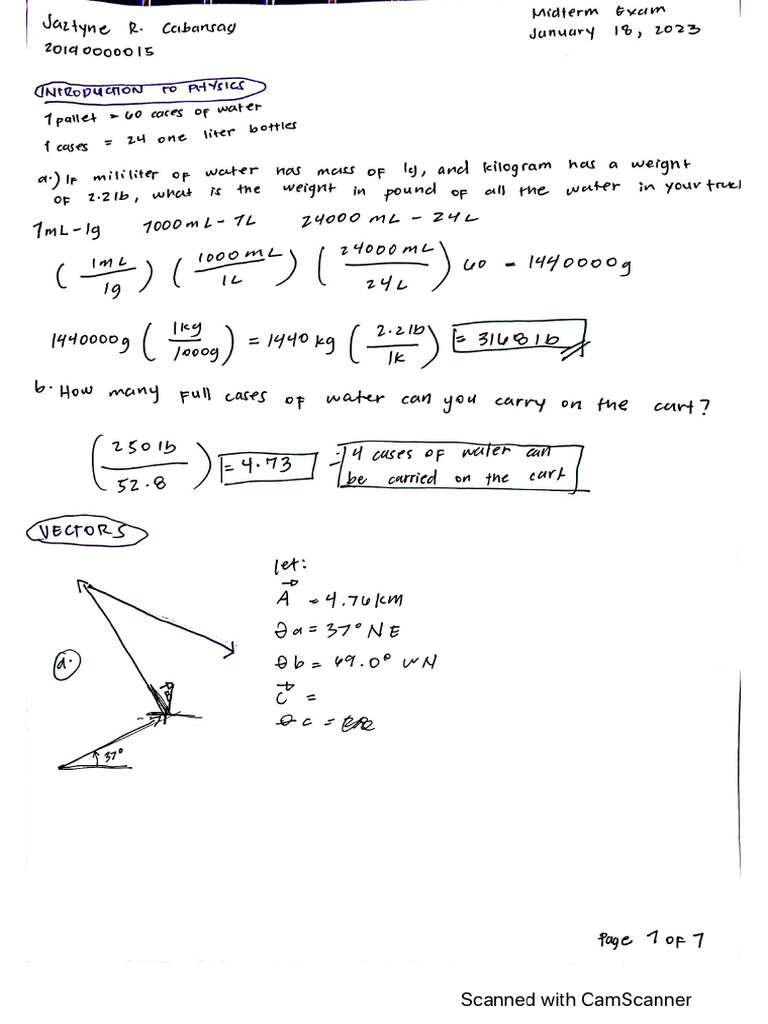 Jaztyne R. Cabansag
Midterm Exam
20190000015
January 18, 2023
INTRODUCTION TO PHYSICS
1 pallet = 60 cases of water
1 cases = 24 one liter bottles
a.) If mililiter of water has mass of 1g, and kilogram has a weight
of 2.2lb, what is the weight in pound of all the water in your truck
1mL - 1g 1000mL - 1L 24000 mL - 24L
(1mL/1g) (1000mL/1L) (24000mL/24L) 60 - 1440000g
1440000g (1kg/1000g) = 1440 kg (2.2lb/1k) = 3168lb
b. How many full cases of water can you carry on the cart?
(250lb/52.8) = 4.73 = 4 cases of water can
be carried on the cart
VECTORS
let:
A = 4.76km
θa = 37° NE
a. θb = 69.0° WN
C =
θc =
37°
Page 1 of 7
Scanned with CamScanner